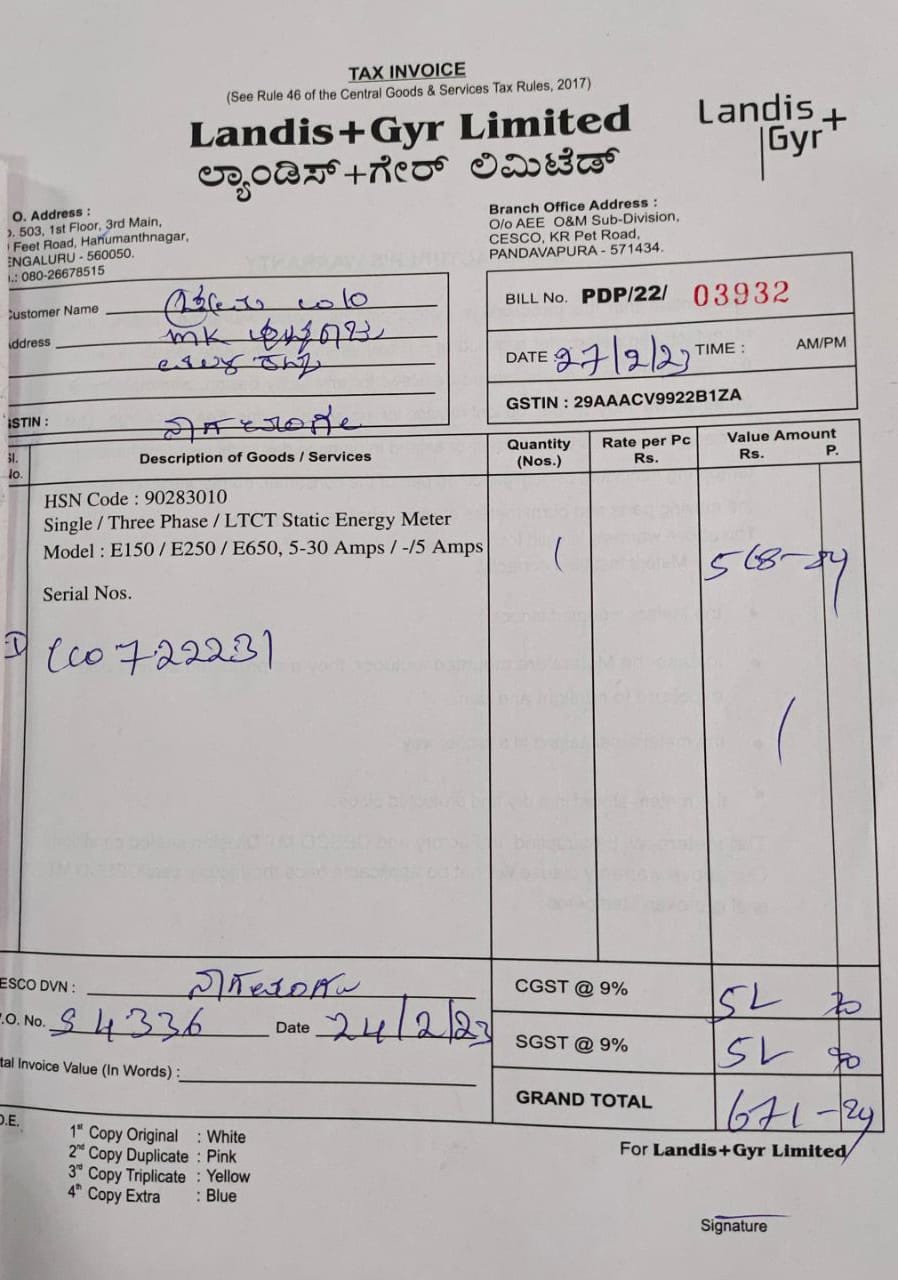 TAX INVOICE
(See Rule 46 of the Central Goods & Services Tax Rules, 2017)
Landis+Gyr Limited
ಲ್ಯಾಂಡಿಸ್+ಗೇರ್ ಲಿಮಿಟೆಡ್
Landis
Gyr+
O. Address :
503, 1st Floor, 3rd Main,
Feet Road, Hanumanthnagar,
ENGALURU - 560050.
.: 080-26678515
Branch Office Address :
O/o AEE O&M Sub-Division,
CESCO, KR Pet Road,
PANDAVAPURA - 571434.
Customer Name
ddress
MK
BILL No. PDP/22/ 03932
DATE : 27/2/23 TIME : AM/PM
GSTIN : 29AAACV9922B1ZA
STIN :
Sl. No. Description of Goods / Services Quantity (Nos.) Rate per Pc Rs. Value Amount Rs. P.
HSN Code : 90283010
Single / Three Phase / LTCT Static Energy Meter
Model : E150 / E250 / E650, 5-30 Amps / -/5 Amps
1 568-84
Serial Nos.
ESCO DVN :
CGST @ 9%
.O. No. S4336 Date 24/2/23
SGST @ 9%
tal Invoice Value (In Words) :
GRAND TOTAL 671-24
O.E.
1st Copy Original : White
2nd Copy Duplicate : Pink
3rd Copy Triplicate : Yellow
4th Copy Extra : Blue
For Landis+Gyr Limited
Signature